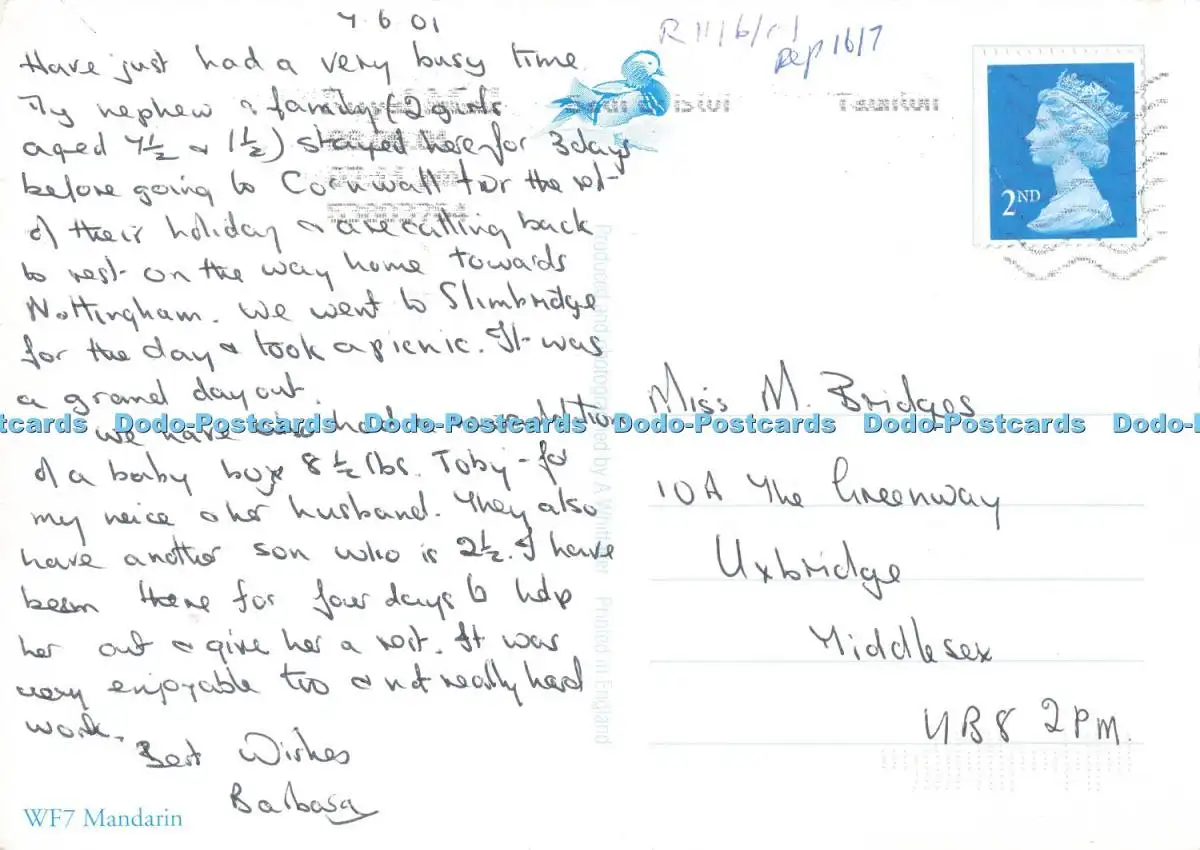 7 6 01
Have just had a very busy time.
My nephew & family (2 girls
aged 4½ & 1½) stayed here for 3 days
before going to Cornwall for the rest
of their holiday & are calling back
to rest on the way home towards
Nottingham. We went to Slimbridge
for the day & took a picnic. It was
a grand day out.
We have also had a new addition
of a baby boy 8½ lbs. Toby - for
my neice & her husband. They also
have another son who is 2½. I have
been there for four days to help
her out & give her a rest. It was
very enjoyable too & not really hard
work.
Best Wishes
Barbara
WF7 Mandarin
Produced and photographed by A Whittaker Printed in England
R 11/6/01
Rep 16/7
Bristol Taunton
2ND
Miss M. Bridges
10A The Greenway
Uxbridge
Middlesex
UB8 2PM.
Dodo-Postcards Dodo-Postcards Dodo-Postcards Dodo-Postcards